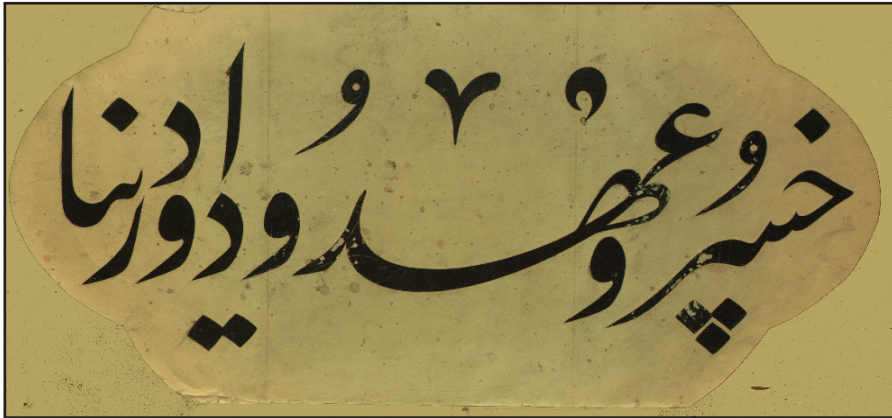 خسرو عهد و داور دنیا